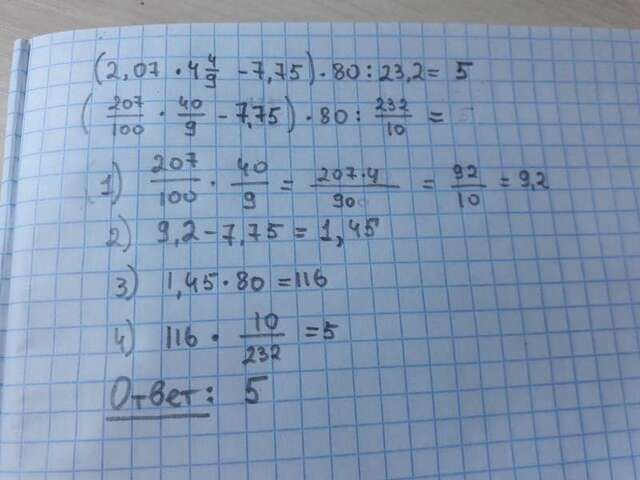 (2,07 · 4 4/9 - 7,75) · 80 : 23,2 = 5
(207/100 · 40/9 - 7,75) · 80 : 232/10 =
1) 207/100 · 40/9 = 207·4/90 = 92/10 = 9,2
2) 9,2 - 7,75 = 1,45
3) 1,45 · 80 = 116
4) 116 · 10/232 = 5
Ответ: 5